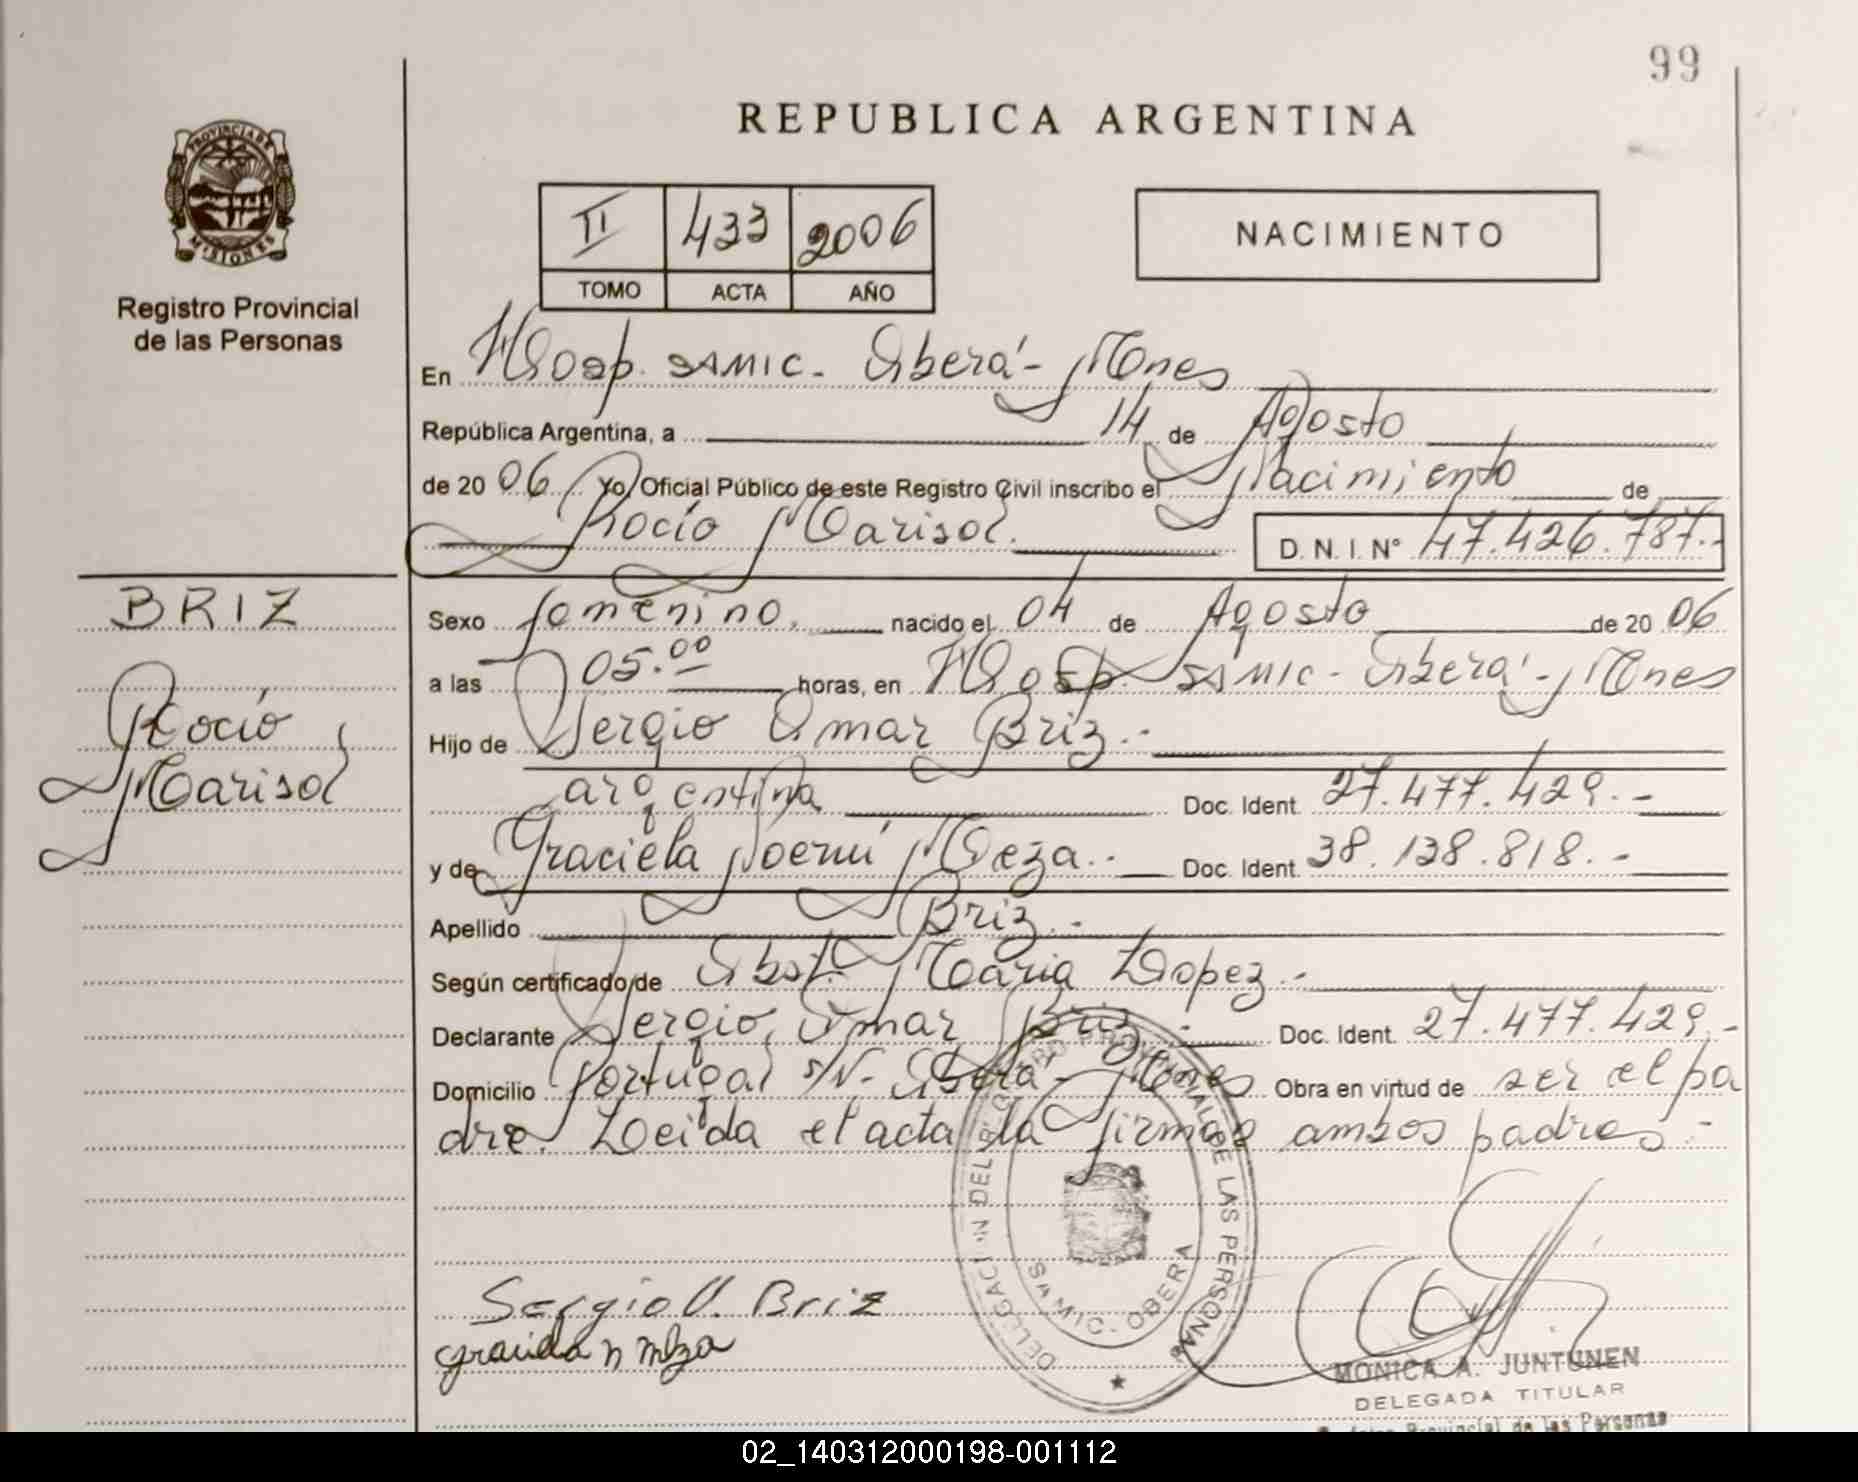 99
REPUBLICA ARGENTINA
PROVINCIA DE
MISIONES
Registro Provincial
de las Personas
II 433 2006
TOMO ACTA AÑO
NACIMIENTO
En Hosp. SAMIC. Oberá - Mnes
República Argentina, a 14 de Agosto
de 2006 Yo, Oficial Público de este Registro Civil inscribo el Nacimiento de
Rocío Marisol. D. N. I. N° 47.426.787.-
BRIZ
Rocío
Marisol
Sexo femenino. nacido el 04 de Agosto de 2006
a las 05.00 horas, en Hosp. SAMIC - Oberá - Mnes
Hijo de Sergio Omar Briz.-
argentina Doc. Ident. 27.477.429.-
y de Graciela Noemí Meza.- Doc. Ident. 38.138.818.-
Apellido Briz.-
Según certificado de Obst. María Lopez.-
Declarante Sergio Omar Briz.- Doc. Ident. 27.477.429.-
Domicilio Portugal s/N- Oberá - Mnes Obra en virtud de ser el pa
dre. Leída el acta la firman ambos padres.-
DELEGACION DEL REGISTRO PROVINCIAL DE LAS PERSONAS
SAMIC. OBERA
Sergio O. Briz
graciela n meza
MONICA A. JUNTUNEN
DELEGADA TITULAR
Provincial de las Personas
02_140312000198-001112